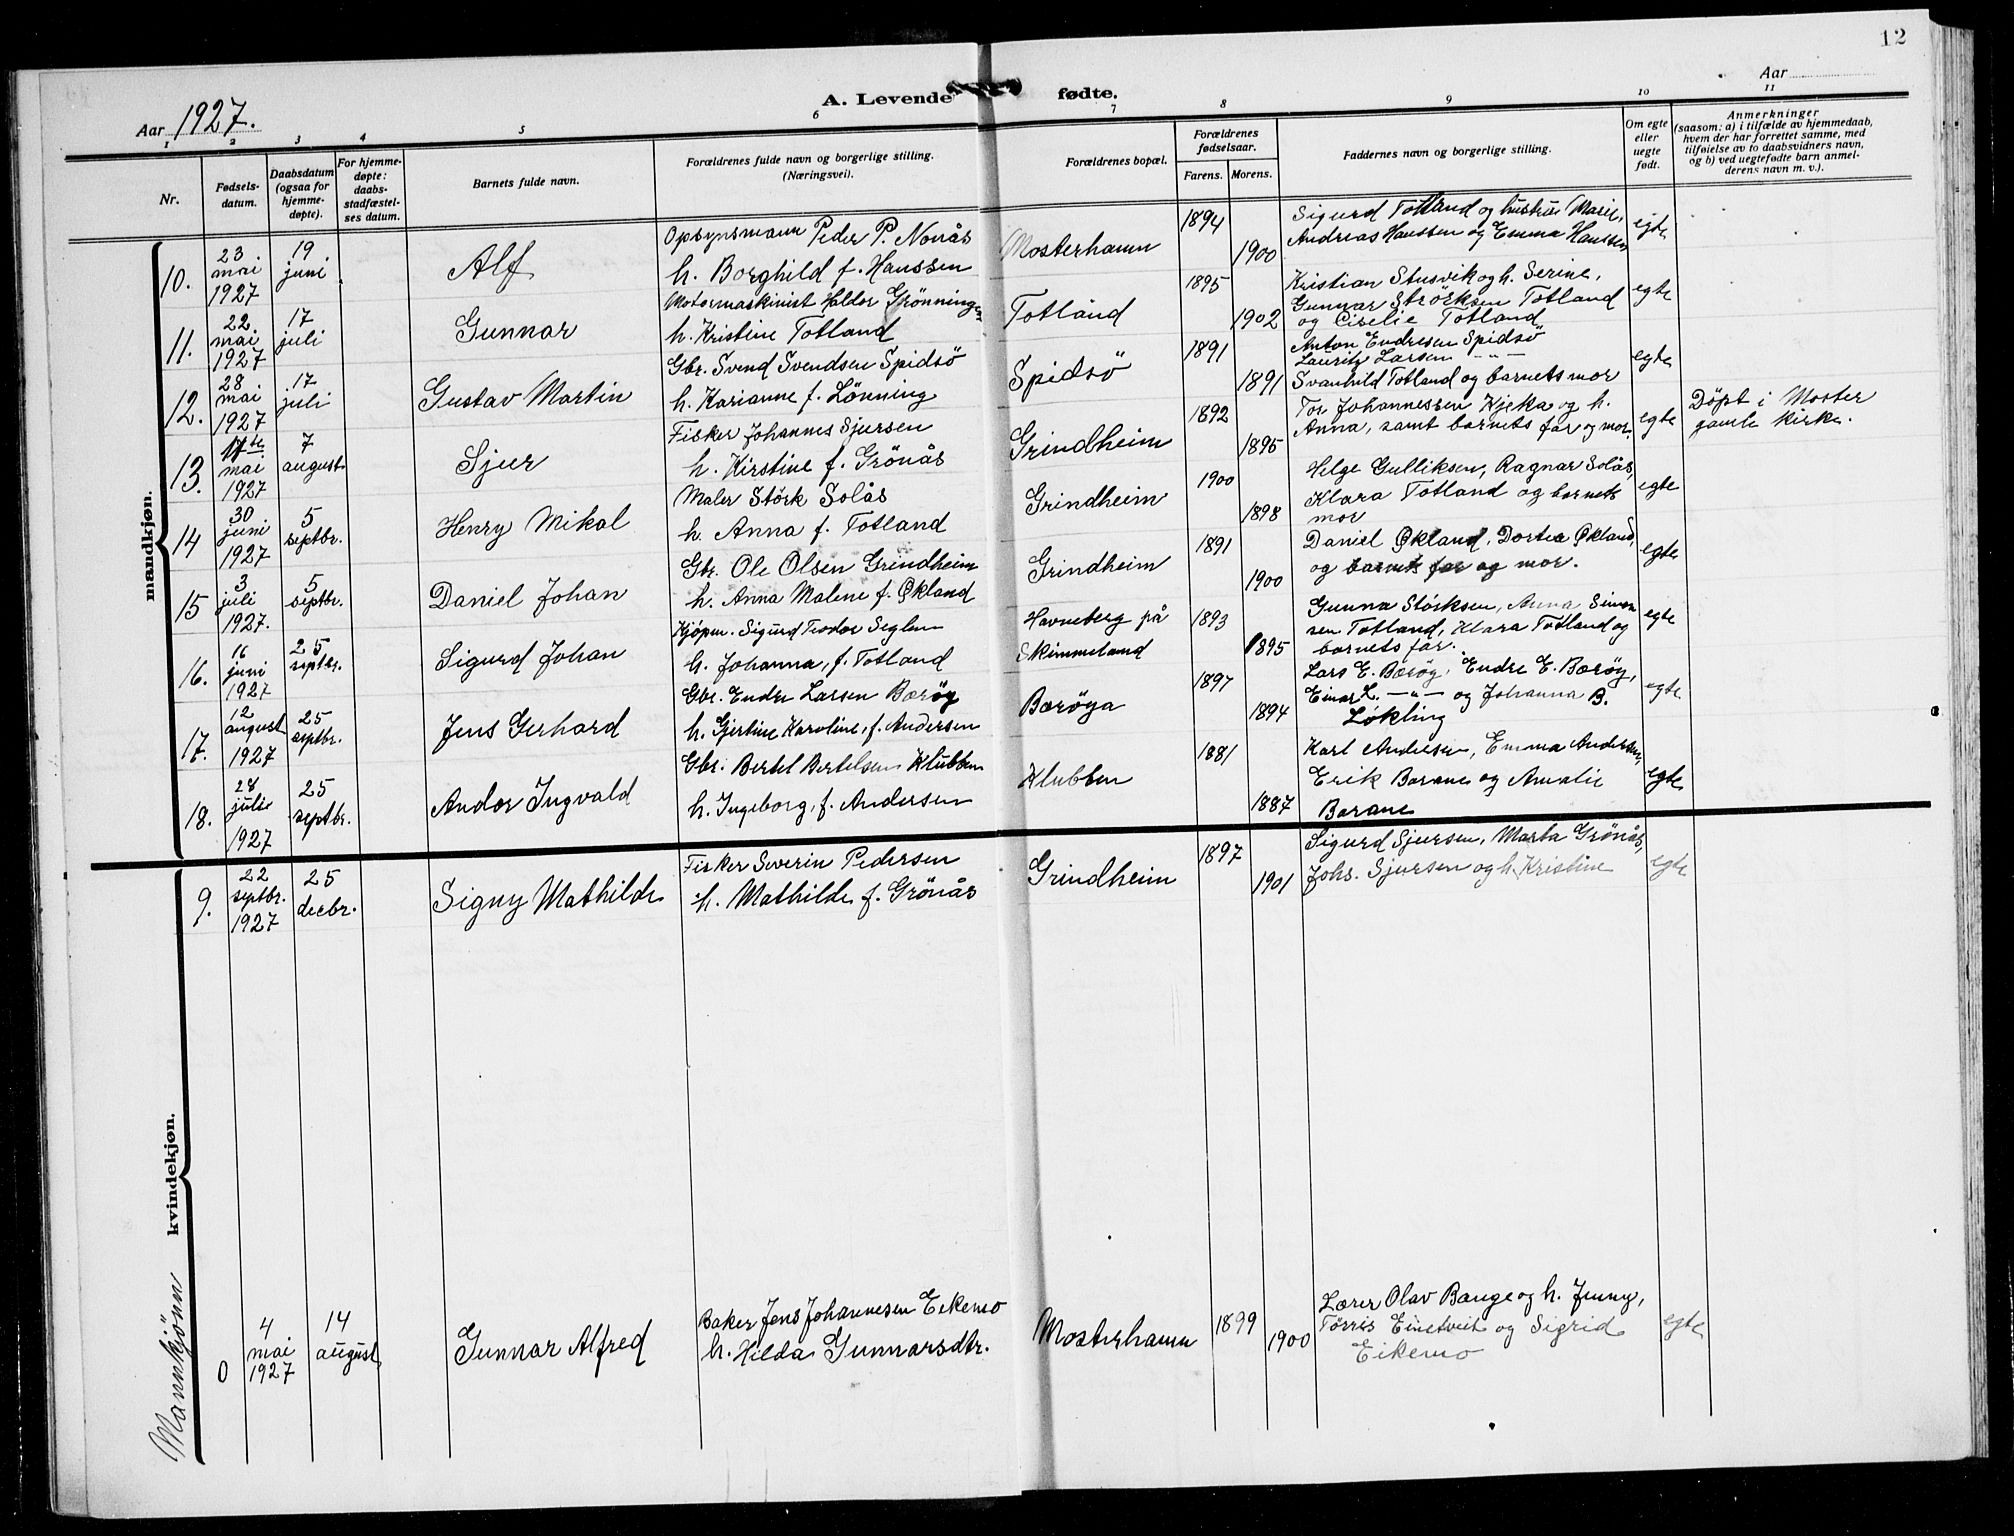 12
Aar 1927.
A. Levende fødte.
Aar
1 2 3 4 5 6 7 8 9 10 11
Nr.
Fødsels-
datum.
Daabsdatum
(ogsaa for
hjemme-
døpte).
For hjemme-
døpte:
daabs-
stadfæstel-
ses datum.
Barnets fulde navn.
Forældrenes fulde navn og borgerlige stilling.
(Næringsvei).
Forældrenes bopæl.
Forældrenes
fødselsaar.
Farens. Morens.
Faddernes navn og borgerlige stilling.
Om egte
eller
uegte
født.
Anmerkninger
(saasom: a) i tilfælde av hjemmedaab,
hvem der har forrettet samme, med
tilføielse av to daabsvidners navn,
og b) ved uegtefødte barn anmel-
derens navn m. v.).
mandkjøn.
10.
23
mai
1927
19
juni
Alf
Opsynsmann Peder P. Nonås
h. Borghild f. Hanssen
Mosterhamn
1894
1900
Sigurd Totland og hustru Marie,
Andreas Hanssen og Emma Hanssen
egte
11.
22.
mai
1927
17
juli
Gunnar
Motormaskinist Haldor Grönningen
h. Kristine Totland
Totland
1895
1902
Kristian Stusvik og h. Serine,
Gunnar Störksen Totland
og Ciselie Totland
egte
12.
28
mai
1927
17
juli
Gustav Martin
Gbr. Svend Svendsen Spidsö
h. Karianne f. Lönning
Spidsö
1891
1891
Anton Endresen Spidsö
Lauritz Larsen — " —
Svanhild Totland og barnets mor
egte
13.
11te
mai
1927
7
august
Sjur
Fisker Johannes Sjursen
h. Kirstine f. Grönås
Grindheim
1892
1895
Tor Johannessen Kjeka og h.
Anna, samt barnets far og mor.
egte
Döpt i Moster
gamle kirke.
14
30
juni
1927
5
septbr.
Henry Mikal
Maler Störk Solås
h. Anna f. Totland
Grindheim
1900
1898
Helge Gulliksen, Ragnar Solås,
Klara Totland og barnets
mor
egte
15
3
juli
1927.
5
septbr.
Daniel Johan
Gbr. Ole Olsen Grindheim
h. Anna Malene f. Økland
Grindheim
1891
1900
Daniel Økland, Dortea Økland,
og barnets far og mor.
egte
16.
16
juni
1927
25
septbr.
Sigurd Johan
Kjøpm. Sigurd Teodor Seglem
h. Johanna, f. Totland
Havneberg på
Skimmeland
1893
1895
Gunna Störksen, Anna Simon
sen Totland, Klara Totland og
barnets far.
egte
17.
12
august
1927
25
septbr.
Jens Gerhard
Gbr. Endre Larsen Børøy
h. Gjertine Karoline, f. Andersen
Børøya
1897
1894
Lars E. Børøy, Endre E. Børøy,
Einar L. — " — og Johanna B.
Løkling
egte
18.
28
julie
1927
25
septbr.
Andor Ingvald
Gbr. Bertel Bertelsen Klubben
h. Ingeborg, f. Andersen
Klubben
1881
1887
Karl Andersen, Emma Andersen,
Erik Borane og Amalie
Borane
egte
kvindekjøn.
9.
22
septbr.
1927
25
decbr.
Signy Mathilde
Fisker Severin Pedersen
h. Mathilde f. Grönås
Grindheim
1897
1901
Sigurd Sjursen, Marta Grönås,
Johs. Sjursen og h. Kristine
egte
Mannkjönn
0
4
mai
1927
14
august
Gunnar Alfred
Baker Jens Johannesen Eikemo
h. Hilda Gunnarsdtr.
Mosterhamn
1899
1900
Lærer Olav Bauge og h. Jenny,
Törris Einetveit og Sigrid
Eikemo
egte